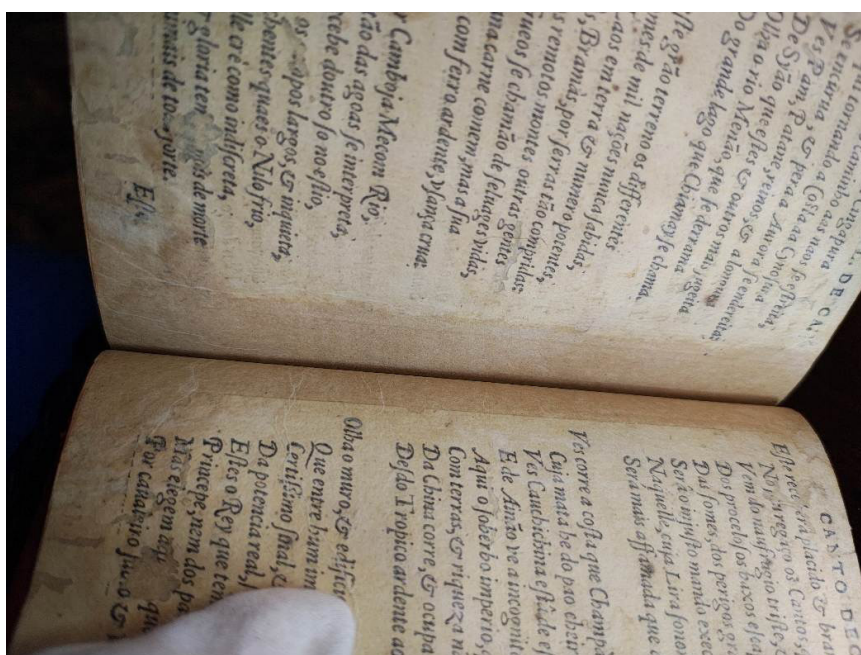 L. DE CA
Cingapura
caminho aas naos se estreita,
tornando a Costa aa Cynosura
Se encurua, & pera a Aurora se endereita:
Ves Pam, Patane, reinos, & a longura
De Syão que estes & outros mais sogeita
Olha o rio Menão, que se derrama
Do grande lago que Chiamay se chama.
ste grão terreno os differentes
mes de mil nações nunca sabidas,
aos em terra & numero potentes,
s, Bramâs, por serras tão compridas:
s remotos montes outras gentes
ueos se chamão de seluages vidas,
na carne comem, mas a sua
com ferro ardente, vsança crua:
r Camboja Mecom Rio,
ção das agoas se interpreta,
cebe doutro so no estio,
os apos largos, & inquieta,
hentes quaes o Nilo frio,
lle cre como indiscreta,
gloria ten de morte
imais de to sorte.
Este
CANTO DEC
Este rec era placido & bran
No regaço os Cantos,
Vem do naufragio triste, e
Dos procelosos baxos escap
Das fomes, dos perigos gra
Serâ o injusto mando exec
Naquelle, cuja Lira sonor
Sera mais affamada que
Ves corre a costa que Champa
Cuja mata he do pao cheir
Ves Cauchichina està de es
E de Ainão ve a incognit
Aqui o soberbo imperio,
Com terras, & riqueza n
Da China corre, & ocupa
Desdo Tropico ardente ao
Olha o muro, & edific
Que entre hum im
Certissimo sinal,
Da potencia real,
Estes o Rey que tem
Princepe, nem dos pa
Mas elegem aq qu
Por caualeiro